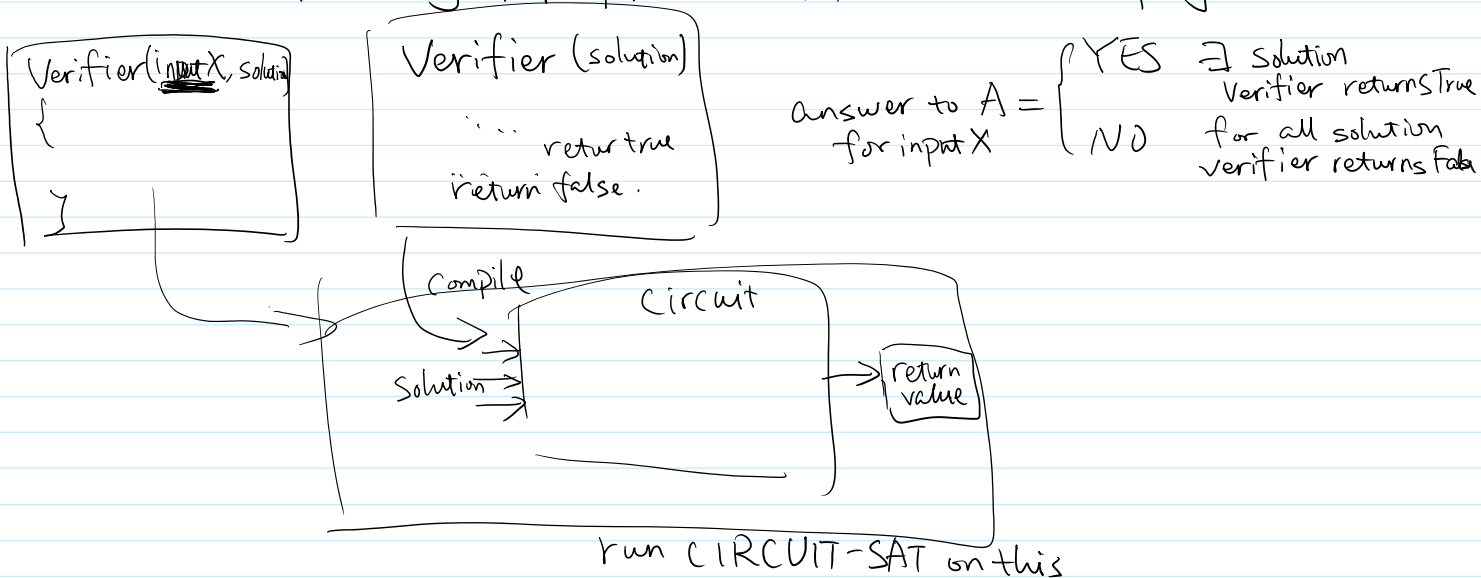 Verifier(input X, solution)
{
}
Verifier (solution)
....
retur true
return false.
answer to A =
for input X
YES ∃ solution
Verifier returns True
NO for all solution
verifier returns False
Compile
Circuit
Solution
return
value
run CIRCUIT-SAT on this